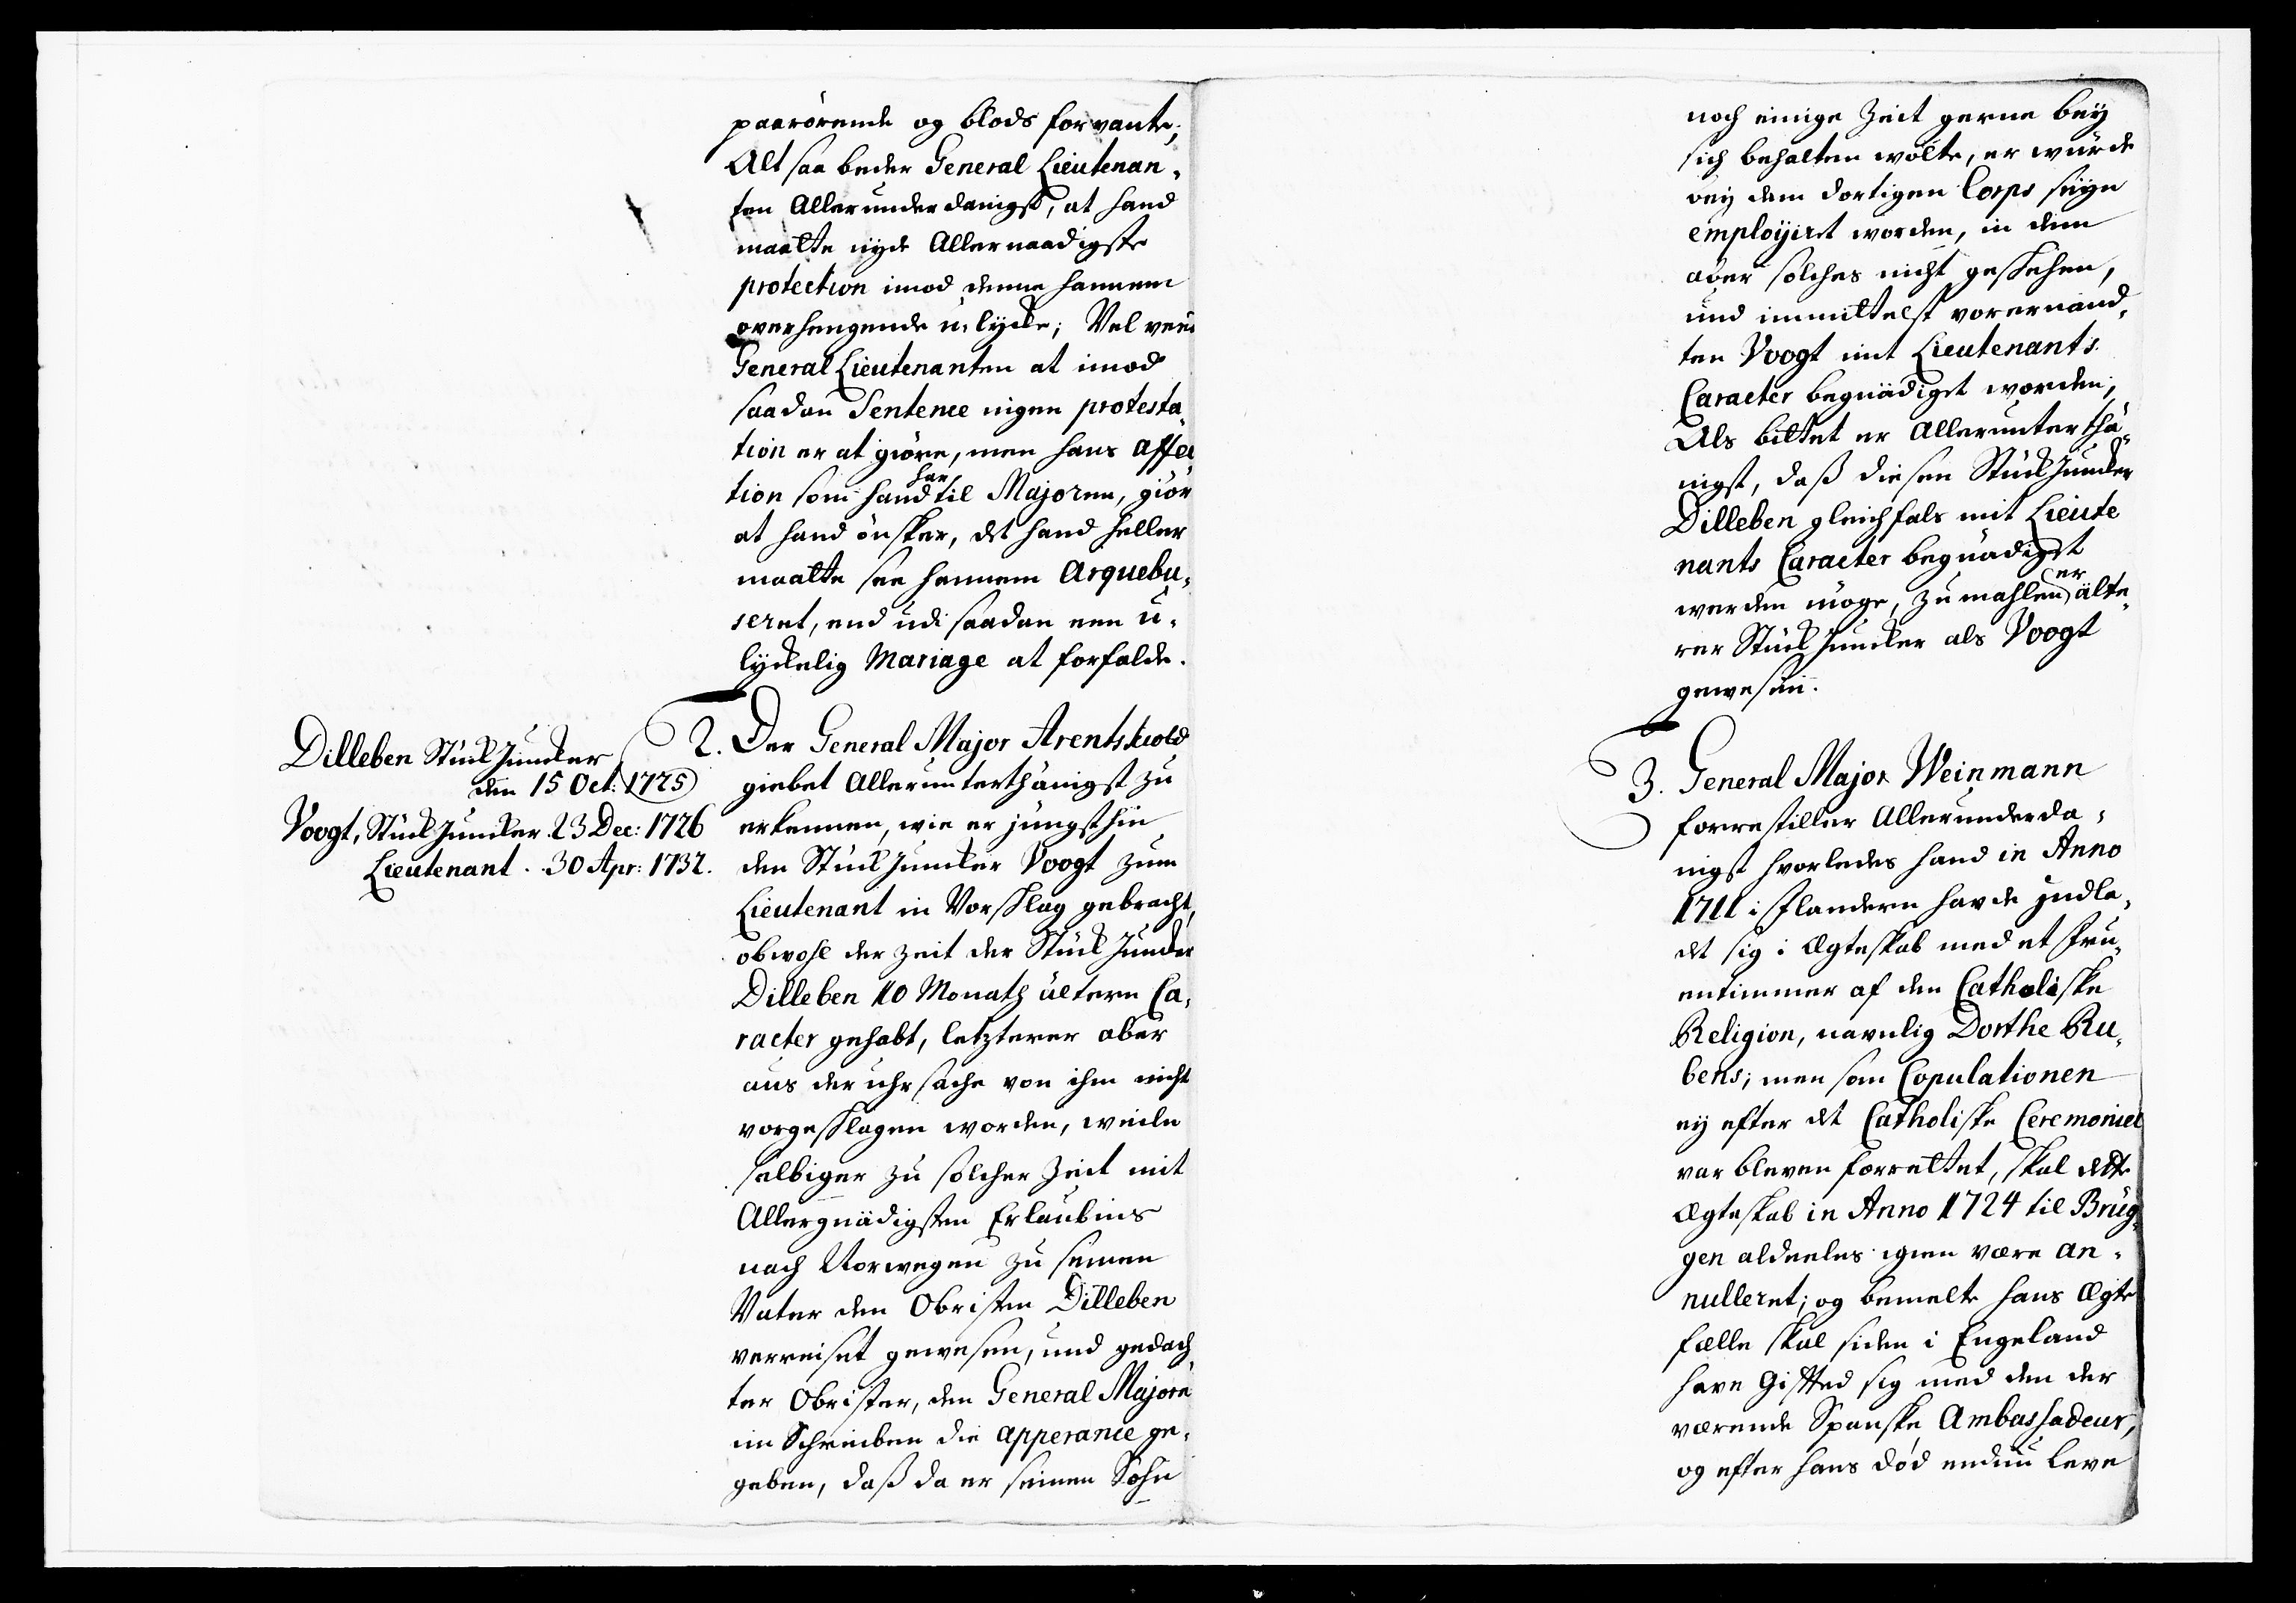 paarörende og blods forvante;
Alt saa beder General Lieutenan,
ten Allerunderdanigst, at hand
maatte nyde Allernaadigste
protection imod denne hannem
overhengende u-lycke; Vel veed
General Lieutenanten at imod
saadan Sentence ingen protesta,
tion er at giöre, men hans affec
tion som hand har til Majoren, giör
at hand önsker, det hand heller
maatte see hannem Arquebu,
seret, end udi saadan een u,
lyckelig Mariage at forfalde.
2. Der General Major Arentskiold
Dilleben Stück Juncker
den 15 Oct: 1725
giebet Allerunterthänigst zu
Voogt, Stück Juncker. 23 Dec: 1726
erkennen, wie er jüngsthin
Lieutenant. 30 Apr: 1732.
den Stück Juncker Voogt zum
Lieutenant in Vorschlag gebracht,
obwohl der Zeit der Stück Juncker
Dilleben 10 Monath ältern Ca,
racter gehabt, letzterer aber
aus der uhrsache von ihm nicht
vorgeschlagen worden, weiln
selbiger zu solcher Zeit mit
Allergnädigsten Erlaubnis
nach Norwegen zu seinen
Vater den Obristen Dilleben
verreiset gewesen, und gedach
ter Obrister, den General Majorn
im Schreiben die apperance ge,
geben, daß da er seinen Sohn
noch einige Zeit gerne bey
sich behalten wolte, er würde
bey dem dortigen Corps seyn
employiret worden, in dem
aber solches nicht geschehen,
und immittelst vorernand,
ten Voogt mit Lieutenants
Caracter begnädiget worden;
Als bittet er Allerunterthä,
nigst, daß diesen Stück Juncker
Dilleben gleichfals mit Lieute
nants Caracter begnädiget
werden möge, zumahlen er älte,
rer Stück Juncker als Voogt
gewesen.
3. General Major Weinmann
forrestiller Allerunderda,
nigst hvorledes hand in Anno
1711 i Flandern havde indla,
det sig i Ægteskab med et Fru,
entimmer af den Catholiske
Religion, navnlig Dorthe Ru,
bens; men som Copulationen
ey efter det Catholiske Ceremoniel
var bleven forrettet, skal dette
Ægteskab in Anno 1724 til Brüg,
gen aldeeles igien være an,
nulleret; og bemelte hans Ægte
fælle skal siden i Engeland
have Gifted sig med den der
værende Spanske Ambassadeur,
og efter hans död endnu leve